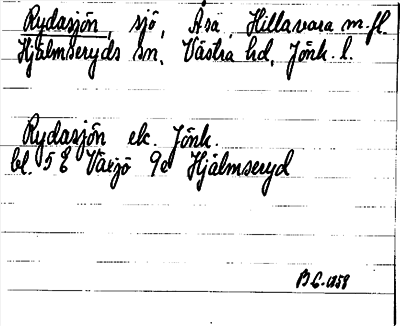 Rydasjön, sjö, Åsa, Hillavara m. fl.
Hjälmseryds sn, Västra hd, Jönk. l.
Rydasjön ek. Jönk.
bl. 5 E Växjö 9c Hjälmseryd
B G. 1958